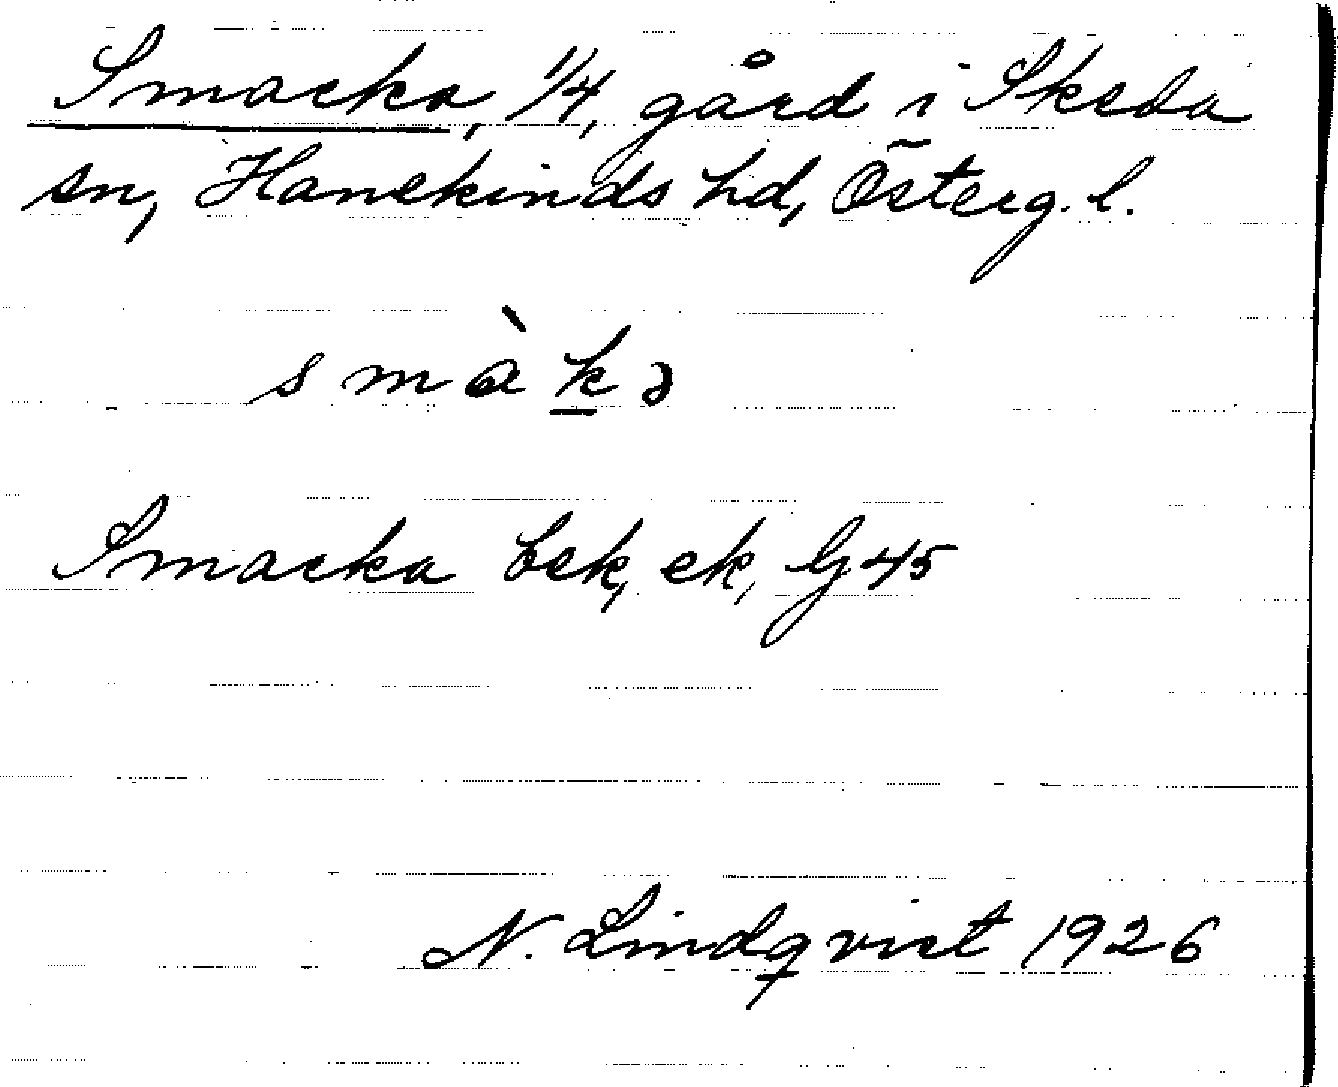 Smacka, 1/4, gård i Skeda
sn, Hanekinds hd, Österg. l.
smàkə
Smacka bek, ek, Gj 45
N. Lindqvist 1926